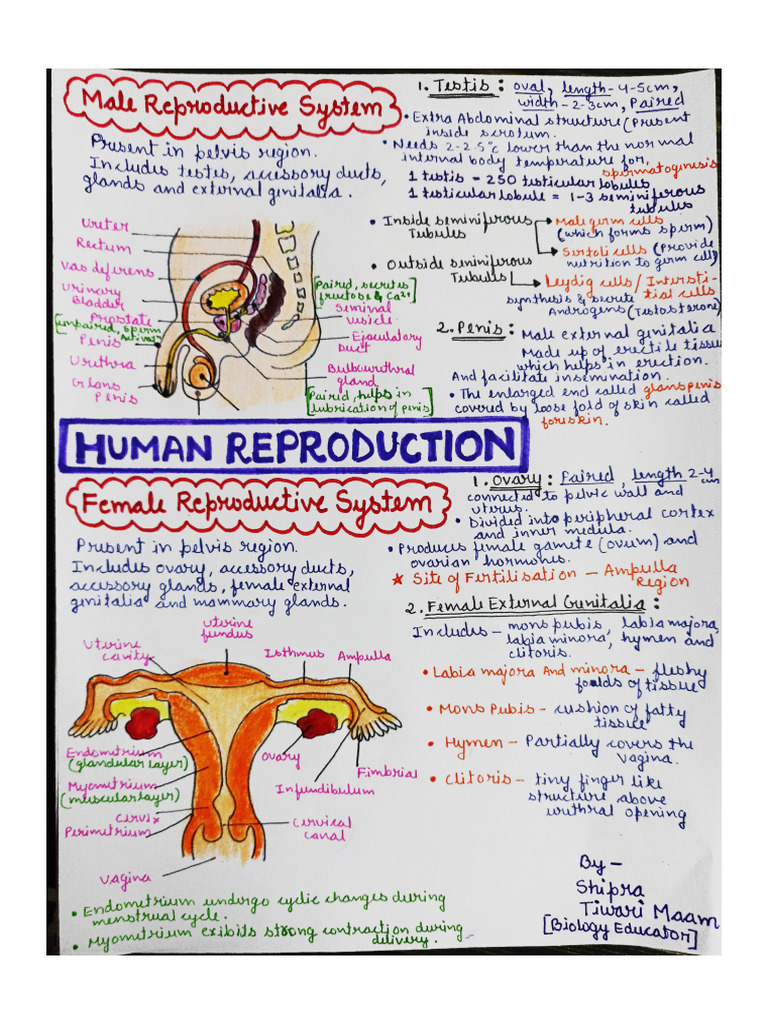 Male Reproductive System
Present in pelvis region.
Includes testes, accessory ducts,
glands and external genitalia.
1. Testis : oval, length - 4-5cm,
width - 2-3cm, Paired
• Extra Abdominal structure (Present
inside scrotum.
• Needs 2-2.5°c lower than the normal
internal body temperature for,
spermatogenesis
1 testis = 250 testicular lobules
1 testicular lobule = 1-3 seminiferous
tubules
• Inside seminiferous
Tubules
Male germ cells
(which forms sperm)
Sertoli cells (Provide
nutrition to germ cell)
• Outside seminiferous
Tubules
Leydig cells / Intersti-
tial cells
synthesis & secrete
Androgens (Testosterone)
2. Penis : Male external genitalia
Made up of erectile tissue
which helps in erection.
And facilitate insemination.
• The enlarged end called glans penis
covered by loose fold of skin called
foreskin.
Ureter
Rectum
Vas deferens
Urinary
Bladder
Prostate
[unpaired, sperm
Penis
Urethra
Glans
Penis
[Paired, secretes
fructose & Ca2+]
Seminal
vesicle
Ejaculatory
Duct
Bulbourethral
gland
[Paired, helps in
lubrication of penis]
HUMAN REPRODUCTION
Female Reproductive System
Present in pelvis region.
Includes ovary, accessory ducts,
accessory glands, female external
genitalia and mammary glands.
1. Ovary : Paired, length 2-4 cm
connected to pelvic wall and
uterus.
• Divided into peripheral cortex
and inner medula.
• Produces female gamete (ovum) and
ovarian hormones.
★ Site of Fertilisation – Ampulla
Region
2. Female External Genitalia :
Includes – mons pubis, labia majora,
labia minora, hymen and
clitoris.
• Labia majora And minora – fleshy
folds of tissue
• Mons Pubis – cushion of fatty
tissue
• Hymen – Partially covers the
vagina.
• Clitoris – tiny finger like
structure above
urethral opening
uterine
fundus
Uterine
cavity
Isthmus
Ampulla
Endometrium
(glandular layer)
Myometrium
(muscular layer)
Cervix
Perimetrium
Vagina
Ovary
Fimbriae
Infundibulum
Cervical
canal
• Endometrium undergo cyclic changes during
menstrual cycle.
• Myometrium exibits strong contraction during
delivery.
By –
Shipra
Tiwari Maam
[Biology Educator]